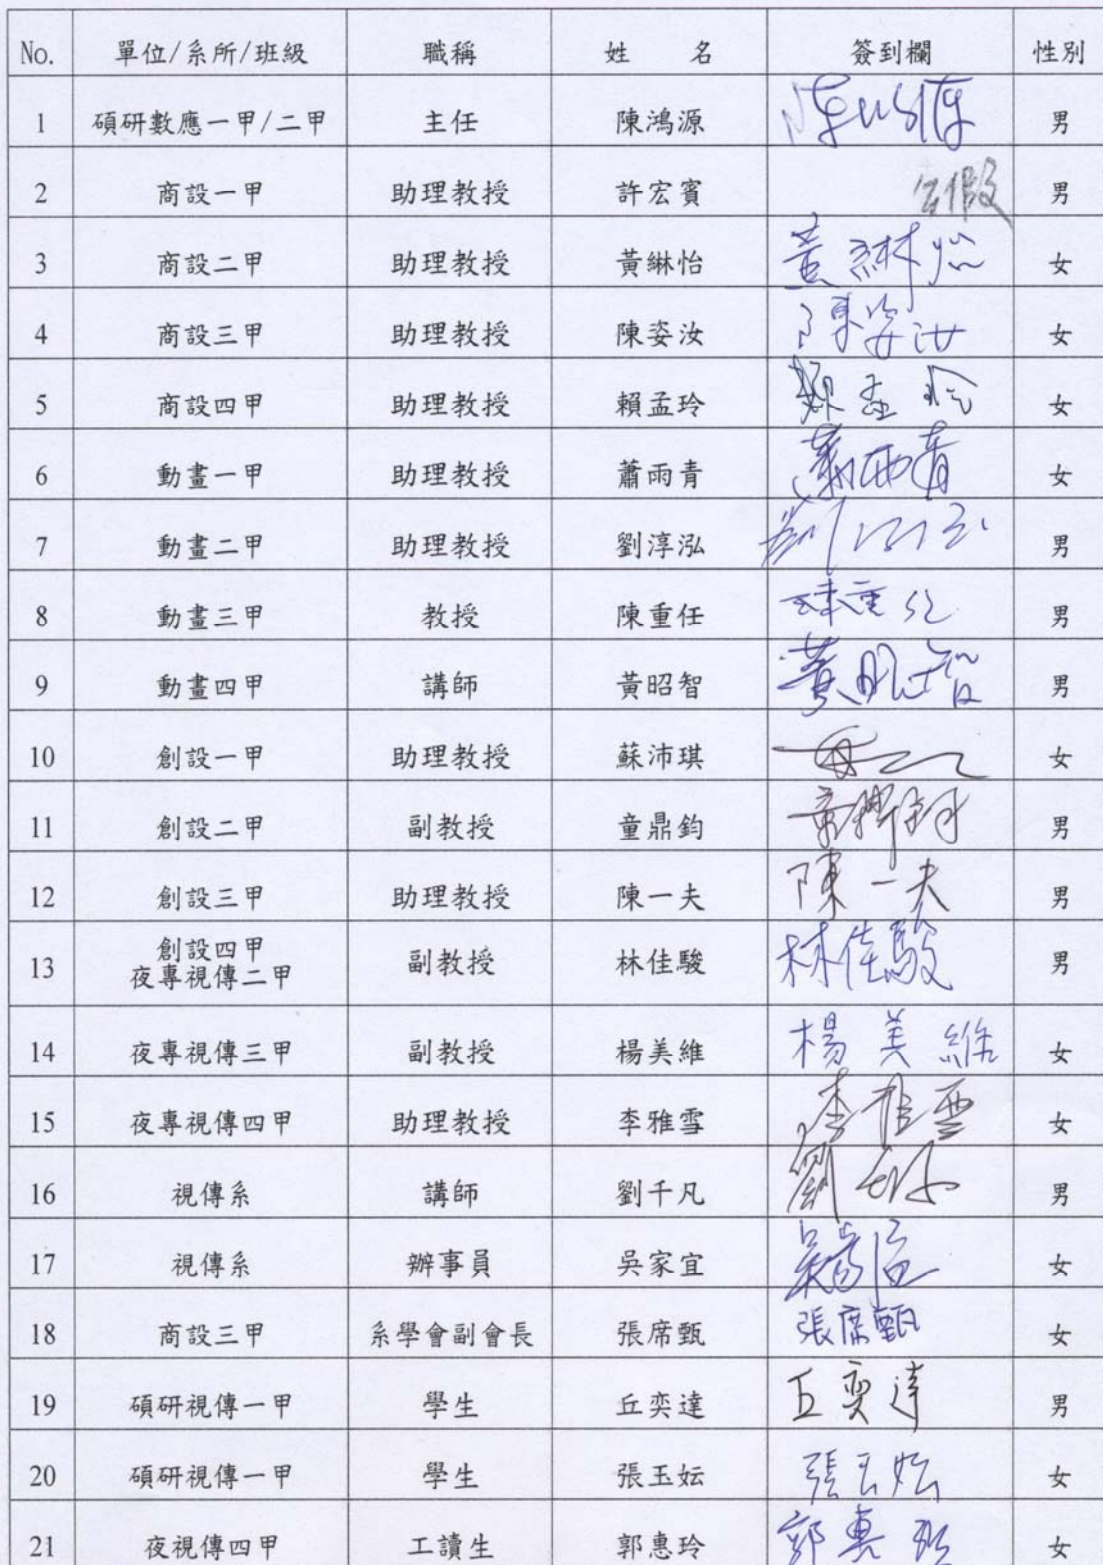 No. 單位/系所/班級 職稱 姓 名 簽到欄 性別
1 碩研數應一甲/二甲 主任 陳鴻源 男
2 商設一甲 助理教授 許宏賓 公假 男
3 商設二甲 助理教授 黃綝怡 黃綝怡 女
4 商設三甲 助理教授 陳姿汝 陳姿汝 女
5 商設四甲 助理教授 賴孟玲 賴孟玲 女
6 動畫一甲 助理教授 蕭雨青 蕭雨青 女
7 動畫二甲 助理教授 劉淳泓 男
8 動畫三甲 教授 陳重任 陳重任 男
9 動畫四甲 講師 黃昭智 黃昭智 男
10 創設一甲 助理教授 蘇沛琪 女
11 創設二甲 副教授 童鼎鈞 童鼎鈞 男
12 創設三甲 助理教授 陳一夫 陳一夫 男
創設四甲
13 夜專視傳二甲 副教授 林佳駿 林佳駿 男
14 夜專視傳三甲 副教授 楊美維 楊美維 女
15 夜專視傳四甲 助理教授 李雅雪 李雅雪 女
16 視傳系 講師 劉千凡 男
17 視傳系 辦事員 吳家宜 吳家宜 女
18 商設三甲 系學會副會長 張席甄 張席甄 女
19 碩研視傳一甲 學生 丘奕達 丘奕達 男
20 碩研視傳一甲 學生 張玉妘 張玉妘 女
21 夜視傳四甲 工讀生 郭惠玲 郭惠玲 女